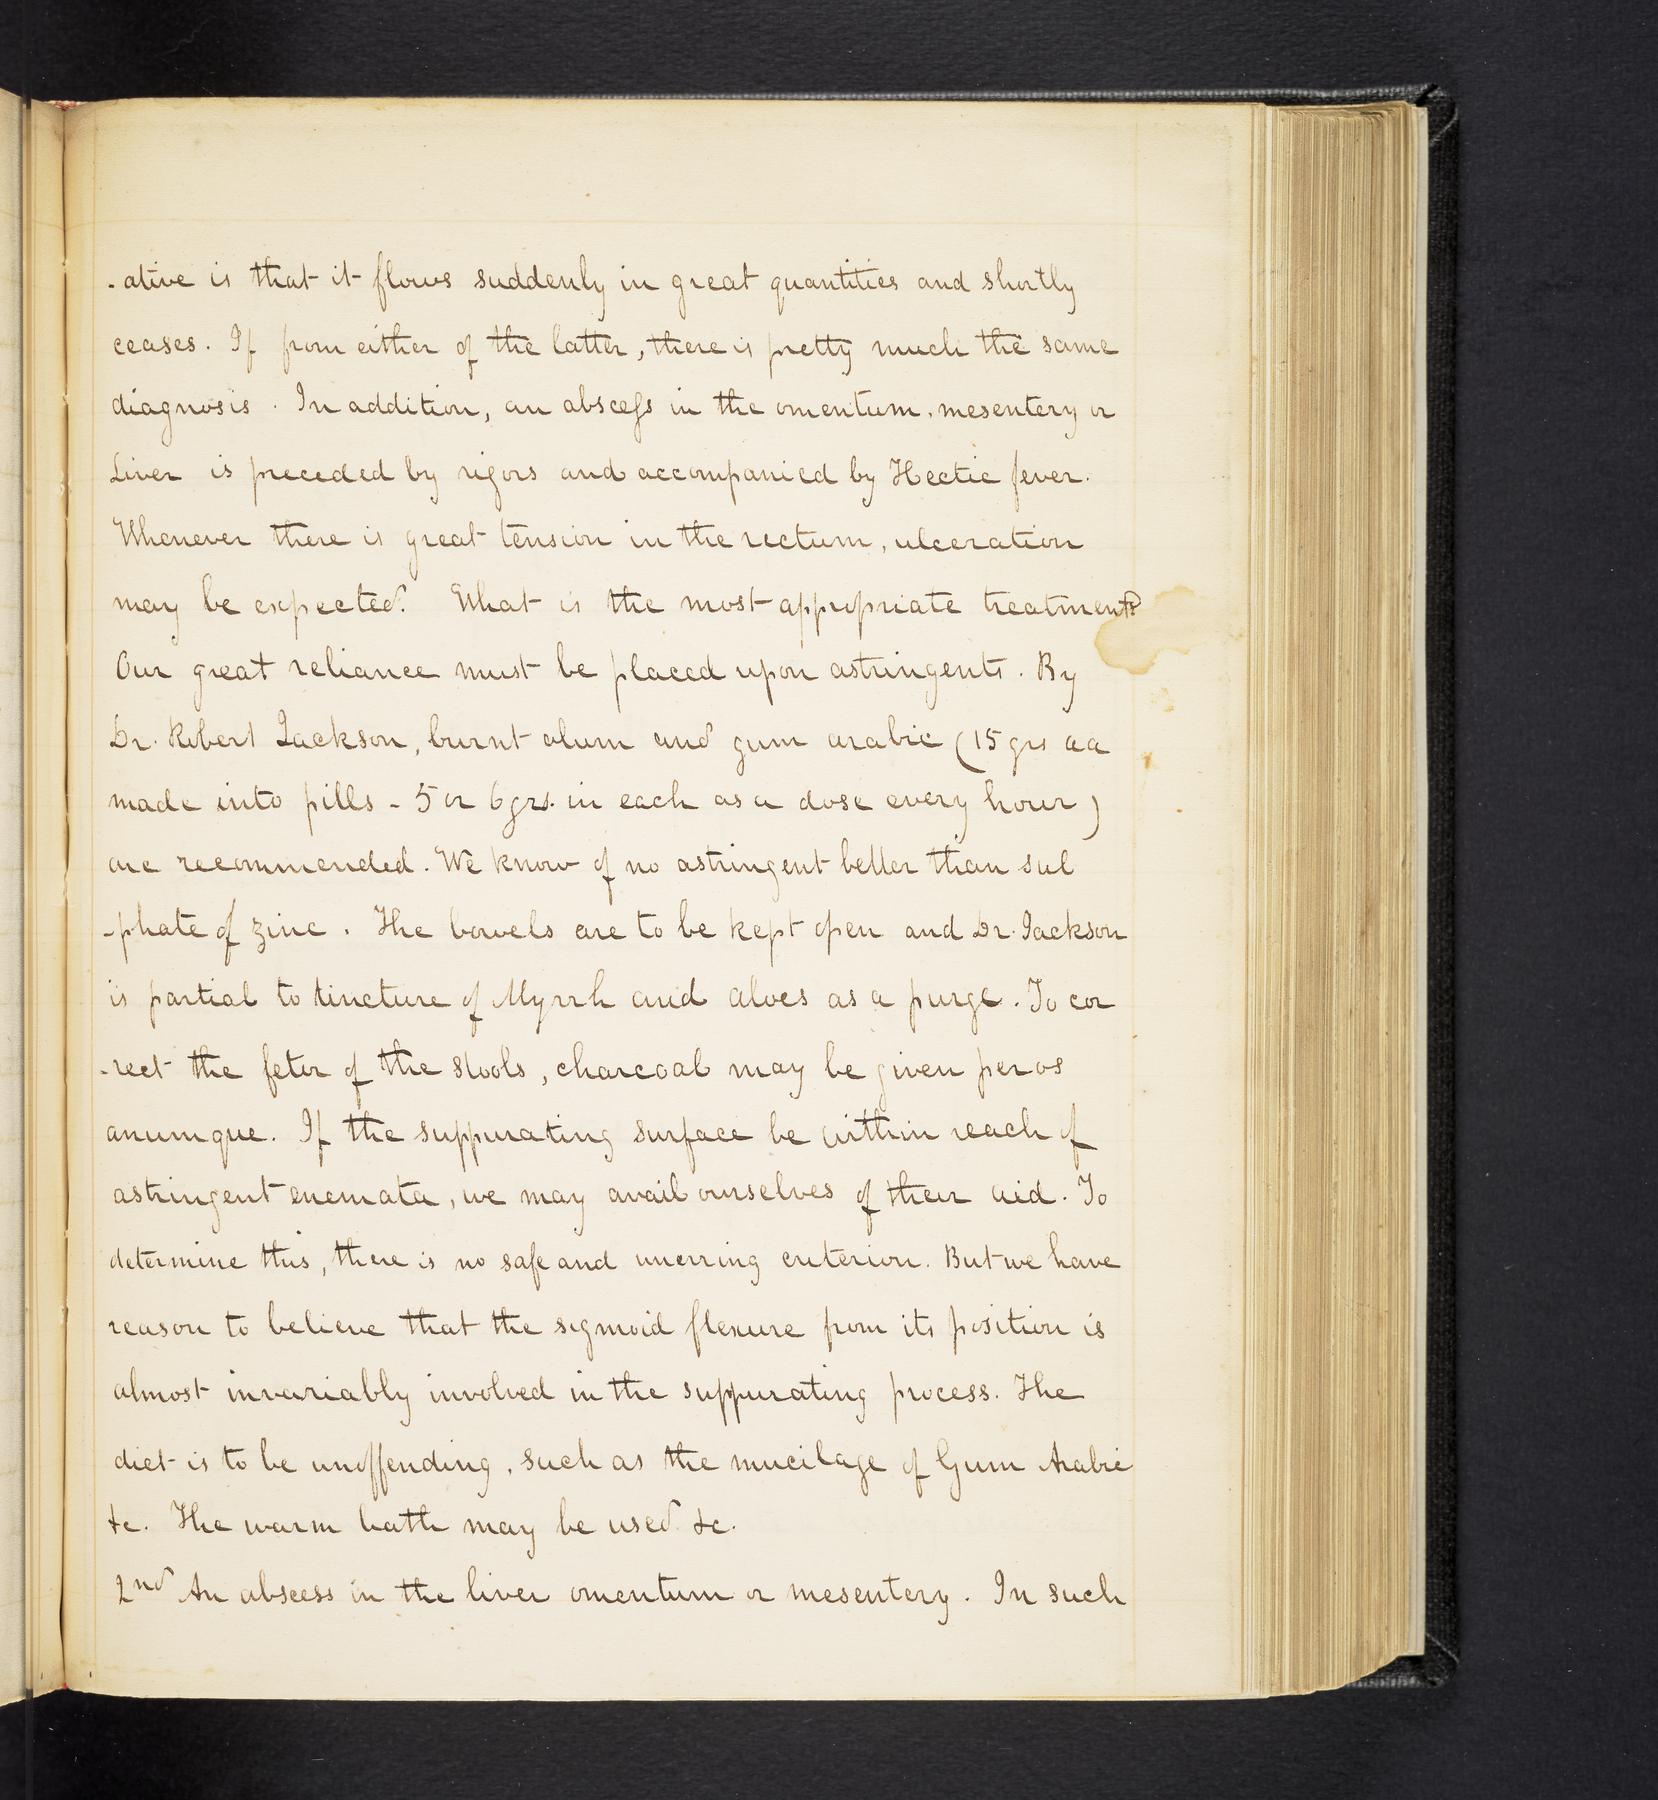 -ative is that it flows suddenly in great quantities and shortly
ceases. If from either of the latter, there is pretty much the same
diagnosis. In addition, an abscess in the omentum, mesentery or
Liver is preceded by rigors and accompanied by Hectic fever.
Whenever there is great tension in the rectum, ulceration
may be expected. What is the most appropriate treatment?
Our great reliance must be placed upon astringents. By
Dr. Robert Jackson, burnt alum and gum arabic (15 grs aa
made into pills - 5 or 6 grs. in each as a dose every hour)
are recommended. We know of no astringent better than sul
-phate of zinc. The bowels are to be kept open and Dr. Jackson
is partial to tincture of Myrrh and aloes as a purge. To cor
-rect the fetor of the stools, charcoal may be given per os
anumque. If the suppurating surface be within reach of
astringent enemata, we may avail ourselves of their aid. To
determine this, there is no safe and unerring criterion. But we have
reason to believe that the sigmoid flexure from its position is
almost invariably involved in the suppurating process. The
diet is to be unoffending, such as the mucilage of Gum Arabic
&c. The warm bath may be used &c.
2nd An abscess in the liver omentum or mesentery. In such